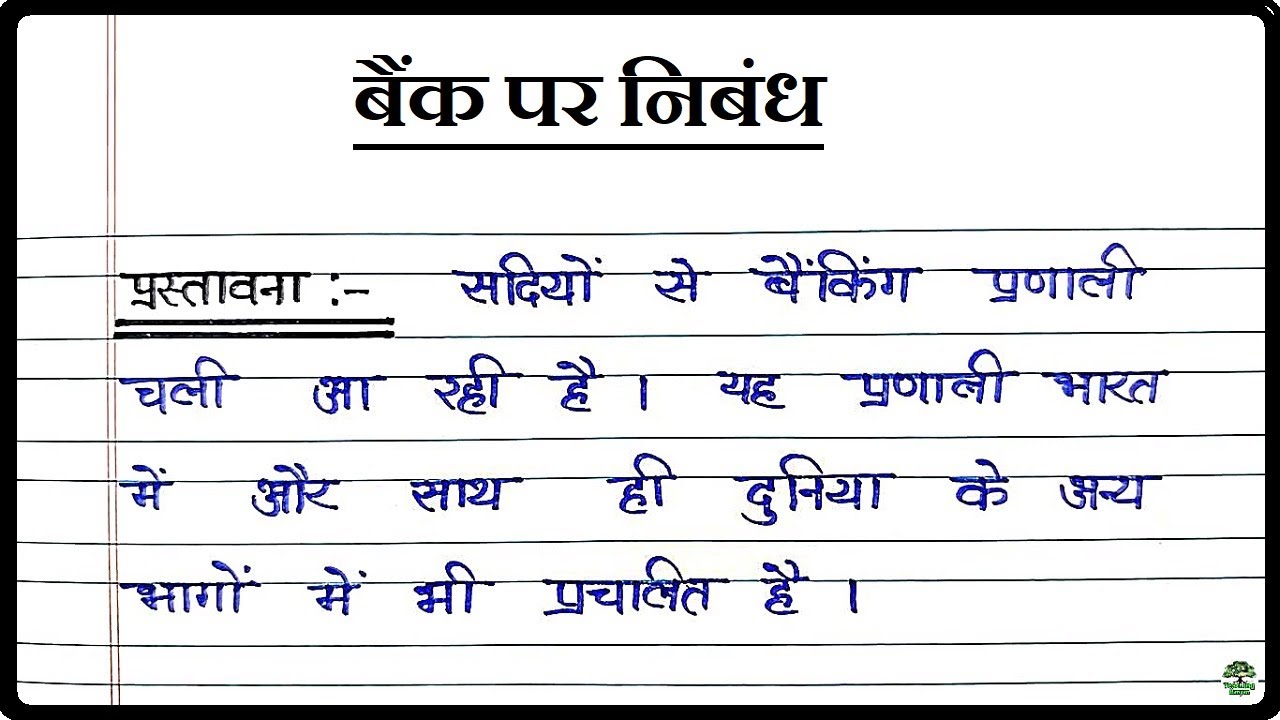 बैंक पर निबंध
प्रस्तावना :- सदियों से बैंकिंग प्रणाली
चली आ रही है । यह प्रणाली भारत
में और साथ ही दुनिया के अन्य
भागों में भी प्रचलित है ।